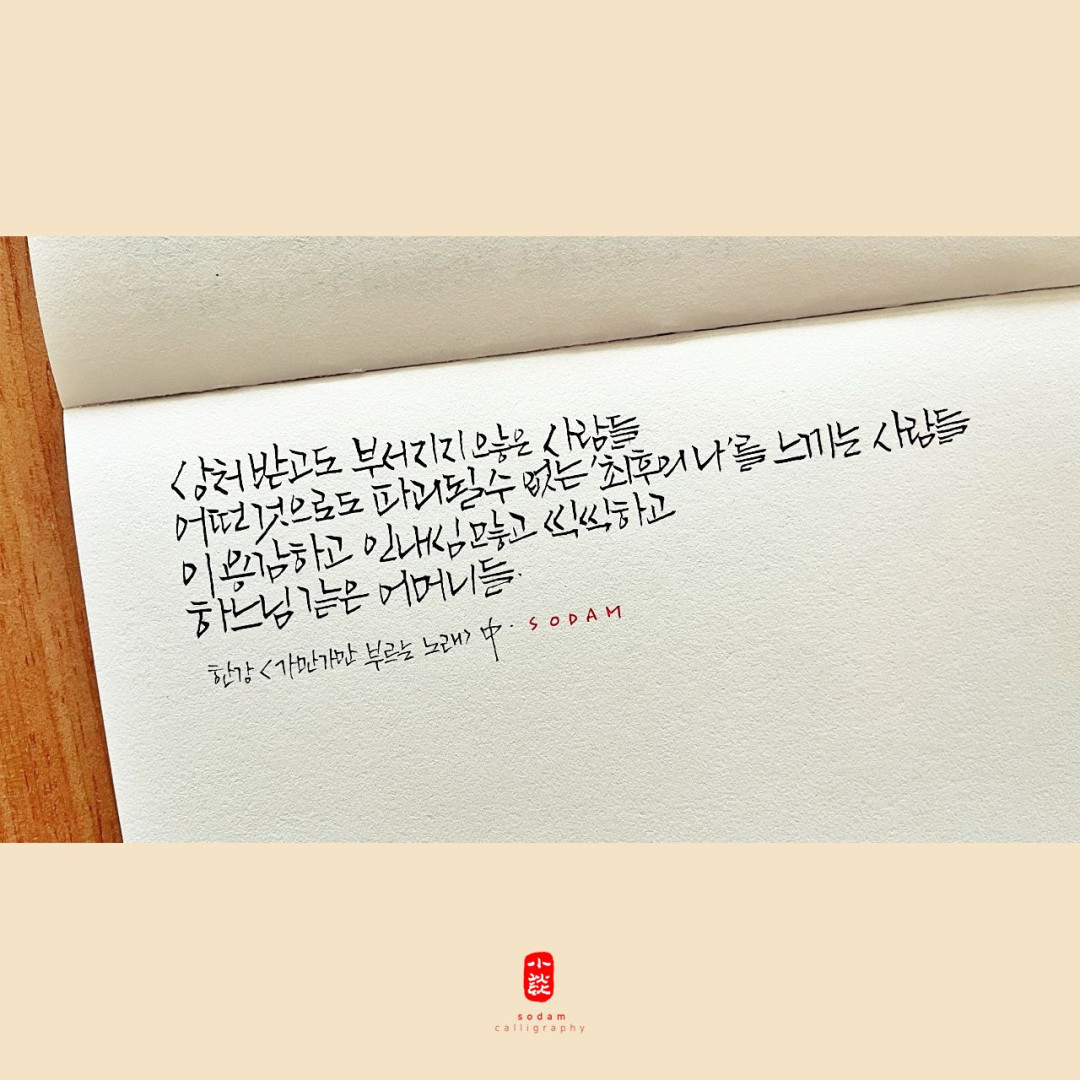 상처받고도 부서지지 않은 사람들
어떤것으로도 파괴될수 없는 '최후의 나'를 느끼는 사람들
이 용감하고 인내심많고 씩씩하고
하느님같은 어머니들.
한강 <가만가만 부르는 노래> 中. SODAM
小談
sodam
calligraphy